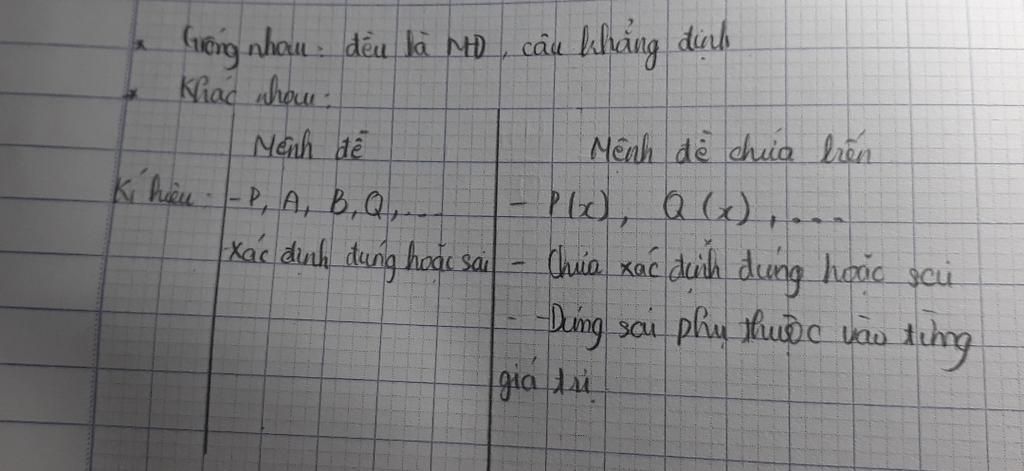 * Giống nhau: đều là MĐ, câu khẳng định
* Khác nhau:
Mệnh đề Mệnh đề chứa biến
Kí hiệu: - P, A, B, Q,... - P(x), Q(x),....
- Xác định đúng hoặc sai - Chưa xác định đúng hoặc sai
- Đúng sai phụ thuộc vào từng
giá trị.